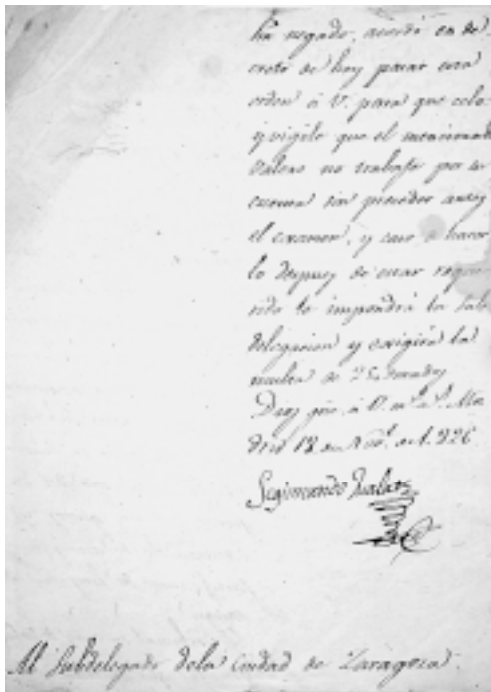 ha negado, acordó en de
creto de hoy pasar esta
orden á V. para que cele
y vigile que el mencionado
Valero no trabaje por su
cuenta sin preceder antes
el examen, y caso de hacer
lo despues de estar reque
rido le impondrá la Sub
delegacion y exigirá la
multa de ducados
Dios gue. á V. ms. as. Ma
drid 18 de Nov. de 1.826.
Segismundo
Al Subdelegado dela Ciudad de Zaragoza.